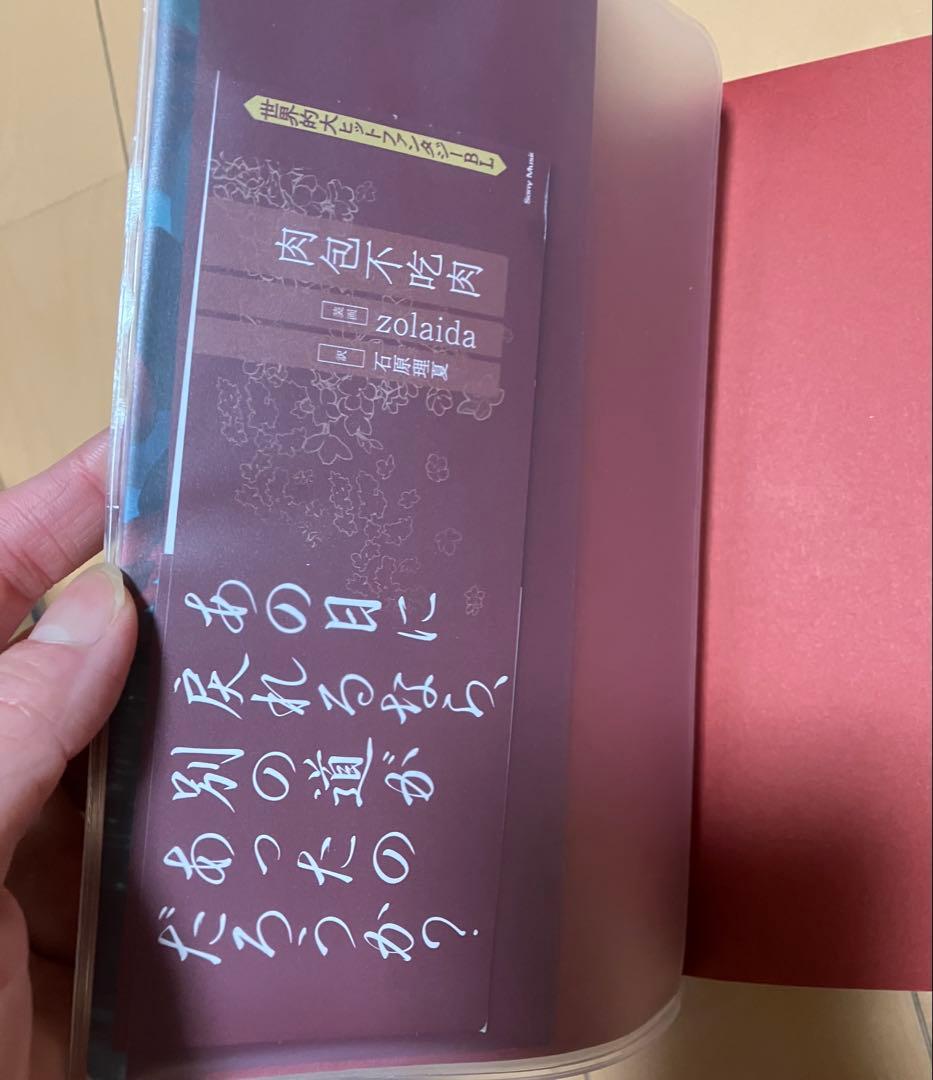 世界的大ヒットファンタジーBL
Sony Music
肉包不吃肉
装画 zolaida
訳 石原理夏
あの日に
戻れるなら、
別の道が
あったの
だろうか?